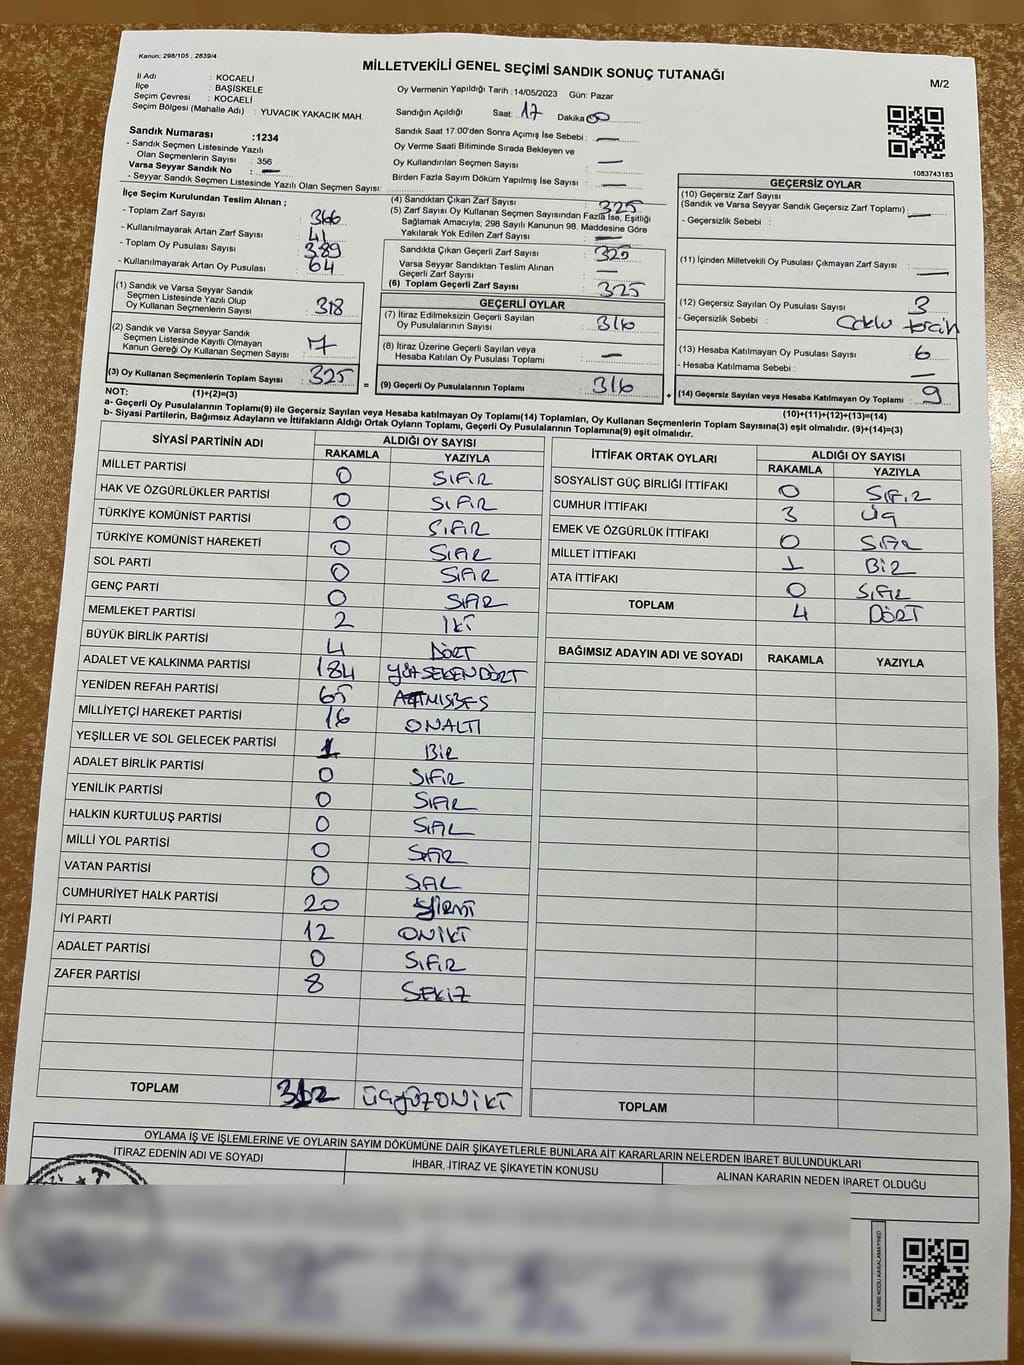 Kanun: 298/105 , 2839/4
MİLLETVEKİLİ GENEL SEÇİMİ SANDIK SONUÇ TUTANAĞI
M/2
İl Adı : KOCAELİ
İlçe : BAŞİSKELE
Seçim Çevresi : KOCAELİ
Seçim Bölgesi (Mahalle Adı) : YUVACIK YAKACIK MAH.
Oy Vermenin Yapıldığı Tarih :14/05/2023 Gün: Pazar
Sandığın Açıldığı Saat: 17 Dakika 00
Sandık Saat 17:00'den Sonra Açımış İse Sebebi : —
Oy Verme Saati Bitiminde Sırada Bekleyen ve
Oy Kullandırılan Seçmen Sayısı : —
Birden Fazla Sayım Döküm Yapılmış İse Sayısı : —
1083743183
Sandık Numarası :1234
- Sandık Seçmen Listesinde Yazılı
Olan Seçmenlerin Sayısı : 356
Varsa Seyyar Sandık No : —
- Seyyar Sandık Seçmen Listesinde Yazılı Olan Seçmen Sayısı:
İlçe Seçim Kurulundan Teslim Alınan ;
- Toplam Zarf Sayısı : 366
- Kullanılmayarak Artan Zarf Sayısı : 41
- Toplam Oy Pusulası Sayısı : 389
- Kullanılmayarak Artan Oy Pusulası : 64
(1) Sandık ve Varsa Seyyar Sandık
Seçmen Listesinde Yazılı Olup
Oy Kullanan Seçmenlerin Sayısı : 318
(2) Sandık ve Varsa Seyyar Sandık
Seçmen Listesinde Kayıtlı Olmayan
Kanun Gereği Oy Kullanan Seçmen Sayısı : 7
(3) Oy Kullanan Seçmenlerin Toplam Sayısı : 325
(4) Sandıktan Çıkan Zarf Sayısı : 325
(5) Zarf Sayısı Oy Kullanan Seçmen Sayısından Fazla İse, Eşitliği
Sağlamak Amacıyla; 298 Sayılı Kanunun 98. Maddesine Göre
Yakılarak Yok Edilen Zarf Sayısı : —
Sandıkta Çıkan Geçerli Zarf Sayısı : 325
Varsa Seyyar Sandıktan Teslim Alınan
Geçerli Zarf Sayısı : —
(6) Toplam Geçerli Zarf Sayısı : 325
GEÇERLİ OYLAR
(7) İtiraz Edilmeksizin Geçerli Sayılan
Oy Pusulalarının Sayısı : 316
(8) İtiraz Üzerine Geçerli Sayılan veya
Hesaba Katılan Oy Pusulası Toplamı : —
= (9) Geçerli Oy Pusulalarının Toplamı : 316
GEÇERSİZ OYLAR
(10) Geçersiz Zarf Sayısı
(Sandık ve Varsa Seyyar Sandık Geçersiz Zarf Toplamı) : —
- Geçersizlik Sebebi :
(11) İçinden Milletvekili Oy Pusulası Çıkmayan Zarf Sayısı : —
(12) Geçersiz Sayılan Oy Pusulası Sayısı : 3
- Geçersizlik Sebebi : Çoklu tercih
(13) Hesaba Katılmayan Oy Pusulası Sayısı : 6
- Hesaba Katılmama Sebebi : —
+ (14) Geçersiz Sayılan veya Hesaba Katılmayan Oy Toplamı : 9
NOT: (1)+(2)=(3)
(10)+(11)+(12)+(13)=(14)
a- Geçerli Oy Pusulalarının Toplamı(9) ile Geçersiz Sayılan veya Hesaba katılmayan Oy Toplamı(14) Toplamları, Oy Kullanan Seçmenlerin Toplam Sayısına(3) eşit olmalıdır. (9)+(14)=(3)
b- Siyasi Partilerin, Bağımsız Adayların ve İttifakların Aldığı Ortak Oyların Toplamı, Geçerli Oy Pusulalarının Toplamına(9) eşit olmalıdır.
SİYASİ PARTİNİN ADI ALDIĞI OY SAYISI
RAKAMLA YAZIYLA
MİLLET PARTİSİ 0 SIFIR
HAK VE ÖZGÜRLÜKLER PARTİSİ 0 SIFIR
TÜRKİYE KOMÜNİST PARTİSİ 0 SIFIR
TÜRKİYE KOMÜNİST HAREKETİ 0 SIFIR
SOL PARTİ 0 SIFIR
GENÇ PARTİ 0 SIFIR
MEMLEKET PARTİSİ 2 İKİ
BÜYÜK BİRLİK PARTİSİ 4 DÖRT
ADALET VE KALKINMA PARTİSİ 184 YÜZSEKSENDÖRT
YENİDEN REFAH PARTİSİ 65 ALTMIŞBEŞ
MİLLİYETÇİ HAREKET PARTİSİ 16 ONALTI
YEŞİLLER VE SOL GELECEK PARTİSİ 1 BİR
ADALET BİRLİK PARTİSİ 0 SIFIR
YENİLİK PARTİSİ 0 SIFIR
HALKIN KURTULUŞ PARTİSİ 0 SIFIR
MİLLİ YOL PARTİSİ 0 SIFIR
VATAN PARTİSİ 0 SIFIR
CUMHURİYET HALK PARTİSİ 20 YİRMİ
İYİ PARTİ 12 ONİKİ
ADALET PARTİSİ 0 SIFIR
ZAFER PARTİSİ 8 SEKİZ
TOPLAM 312 ÜÇYÜZONİKİ
İTTİFAK ORTAK OYLARI ALDIĞI OY SAYISI
RAKAMLA YAZIYLA
SOSYALİST GÜÇ BİRLİĞİ İTTİFAKI 0 SIFIR
CUMHUR İTTİFAKI 3 ÜÇ
EMEK VE ÖZGÜRLÜK İTTİFAKI 0 SIFIR
MİLLET İTTİFAKI 1 BİR
ATA İTTİFAKI 0 SIFIR
TOPLAM 4 DÖRT
BAĞIMSIZ ADAYIN ADI VE SOYADI RAKAMLA YAZIYLA
TOPLAM
OYLAMA İŞ VE İŞLEMLERİNE VE OYLARIN SAYIM DÖKÜMÜNE DAİR ŞİKAYETLERLE BUNLARA AİT KARARLARIN NELERDEN İBARET BULUNDUKLARI
İTİRAZ EDENİN ADI VE SOYADI İHBAR, İTİRAZ VE ŞİKAYETİN KONUSU ALINAN KARARIN NEDEN İBARET OLDUĞU
KARE KODU KARALAMAYINIZ!